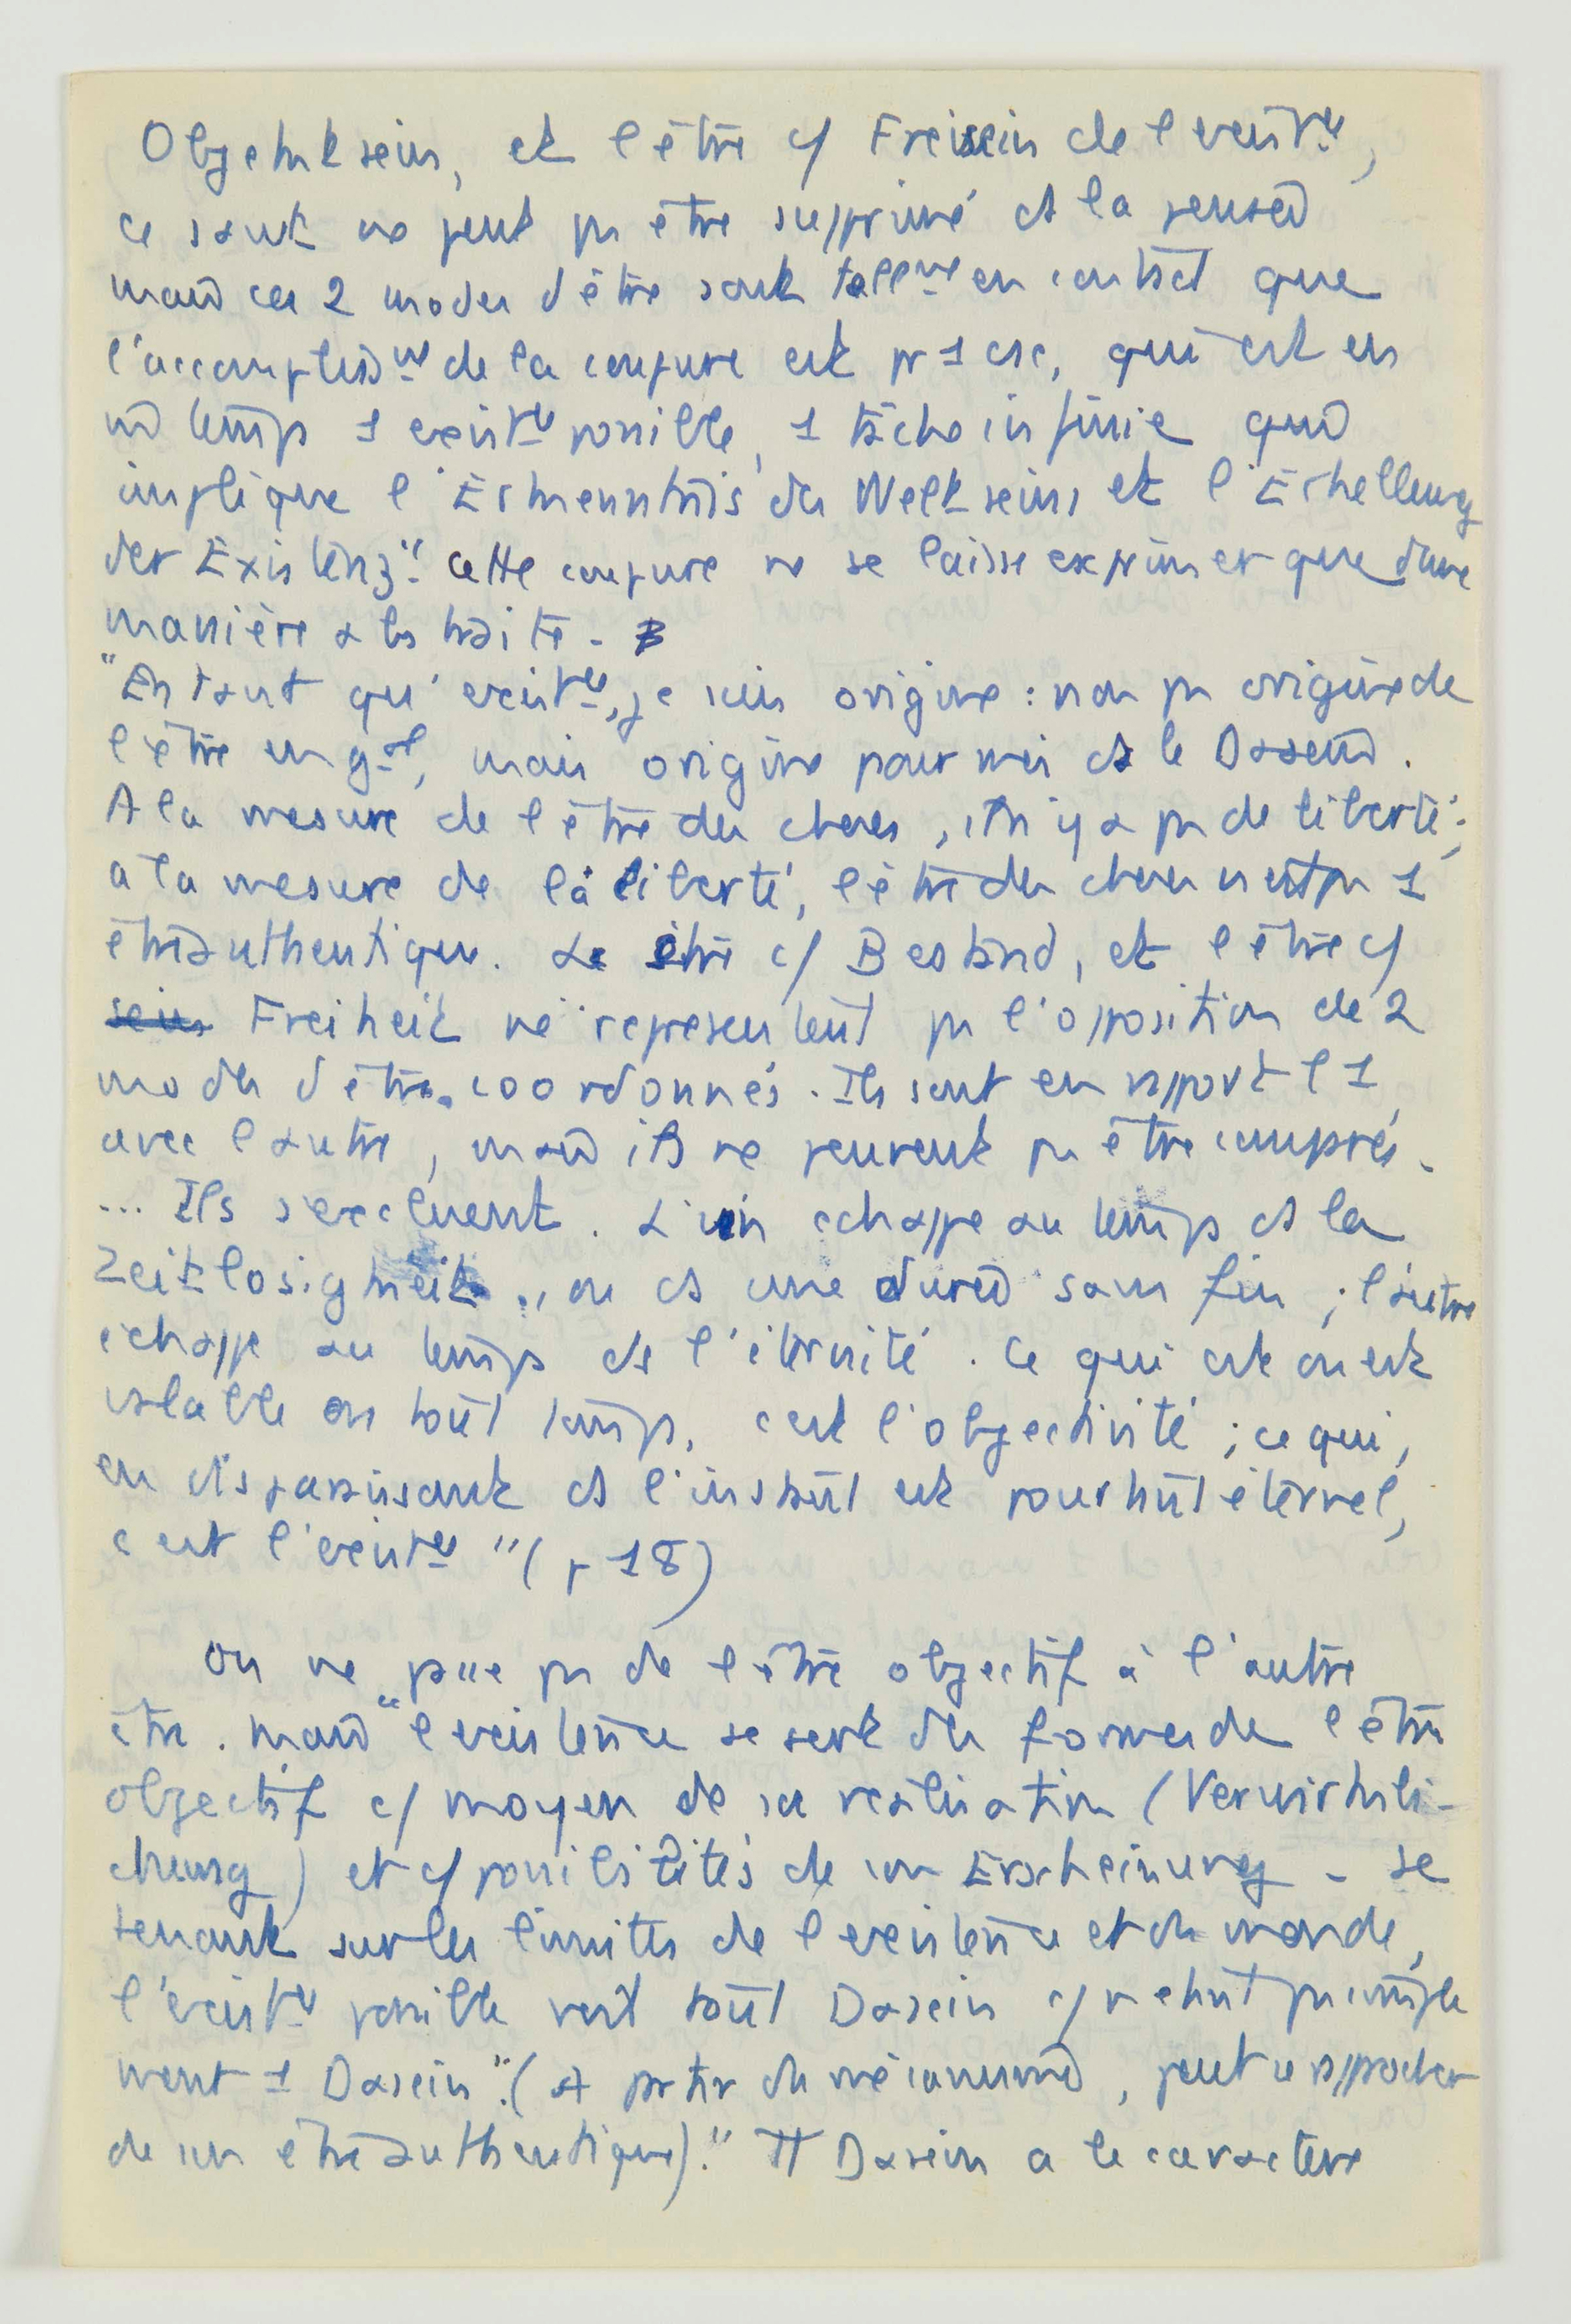 Objektsein, et l'être c/ Freisein de l'exist^ce,
ce saut ne peut pas être supprimé ds la pensée
mais ces 2 modes d'être sont tellem^t en contact que
l'accompliss^mt de la coupure est pr 1 csc, qui est en
m temps 1 exist^ce possible, 1 tâche infinie qui
implique l'Erkenntnis des Weltseins et l'Erhellung
der Existenz". Cette coupure ne se laisse exprimer que d'une
manière abstraite.
"En tant qu'exist^ce, je suis origine : non pas origine de
l'être en g^al, mais origine pour moi ds le Dasein.
A la mesure de l'être des choses, il n'y a pas de liberté ;
à la mesure de la liberté, l'être des choses n'est pas 1
être authentique. Le être c/ Bestand, et l'être c/
sein Freiheit ne représentent pas l'opposition de 2
modes d'être coordonnés. Ils sont en rapport l'1
avec l'autre, mais ils ne peuvent pas être comparés.
... Ils s'excluent. L'un échappe au temps ds la
Zeitlosigkeit, ou ds une durée sans fin ; l'autre
échappe au temps ds l'éternité. Ce qui est ou est
valable en tout temps, c'est l'objectivité ; ce qui,
en disparaissant ds l'instant est pourtant éternel,
c'est l'exist^ce" (p 18)
On ne passe pas de l'être objectif à l'autre
être. Mais "l'existence se sert des formes de l'être
objectif c/ moyen de sa réalisation (Verwirkli-
chung) et c/ possibilités de son Erscheinung - se
tenant sur les limites de l'existence et du monde,
l'exist^ce possible voit tout Dasein c/ n'étant pas simple
ment 1 Dasein". (A partir du mécanisme, peut se rapprocher
de son être authentique). "Tt Dasein a le caractère